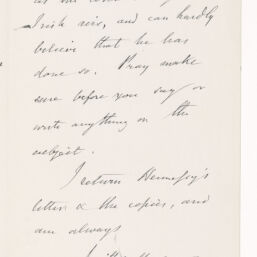 Irish airs, and can hardly
believe that he has
done so. Pray make
sure before you say or
write anything on the
subject.
I return Hennessy's
letter & the copies, and
am always